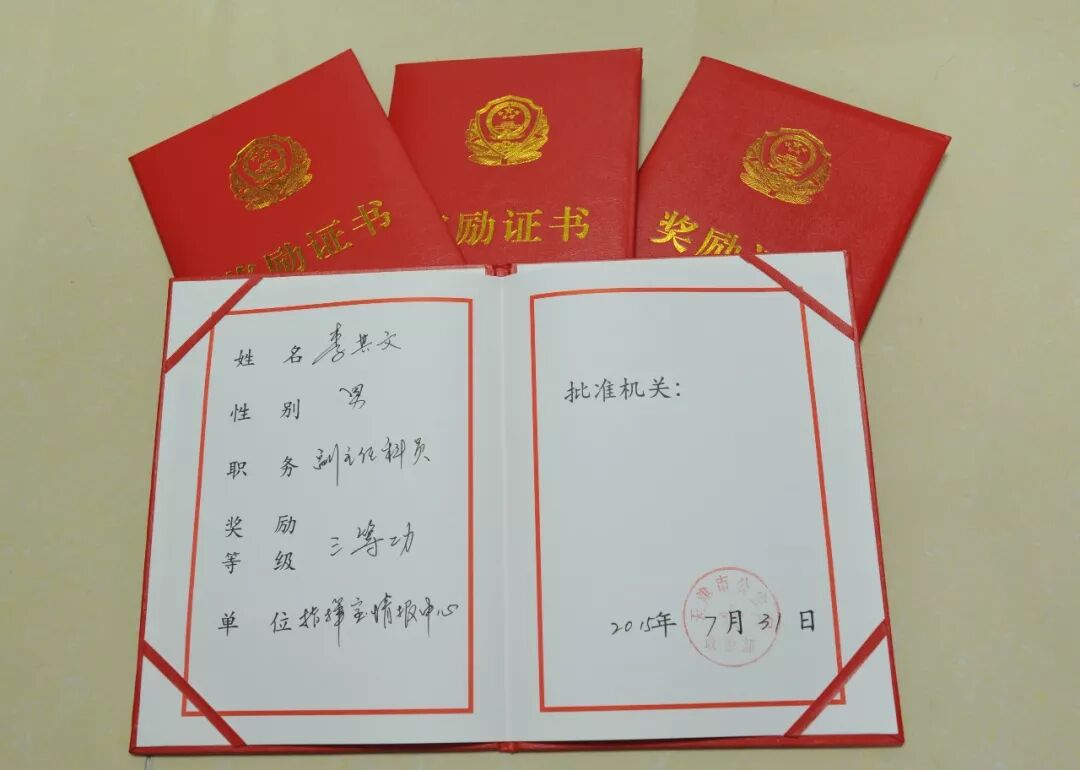 励证书
励证书
奖励
姓名 李其文
性别 男
职务 副主任科员
奖励等级 三等功
单位 指挥室情报中心
批准机关：
2015年7月31日
天津市公安局
政治部